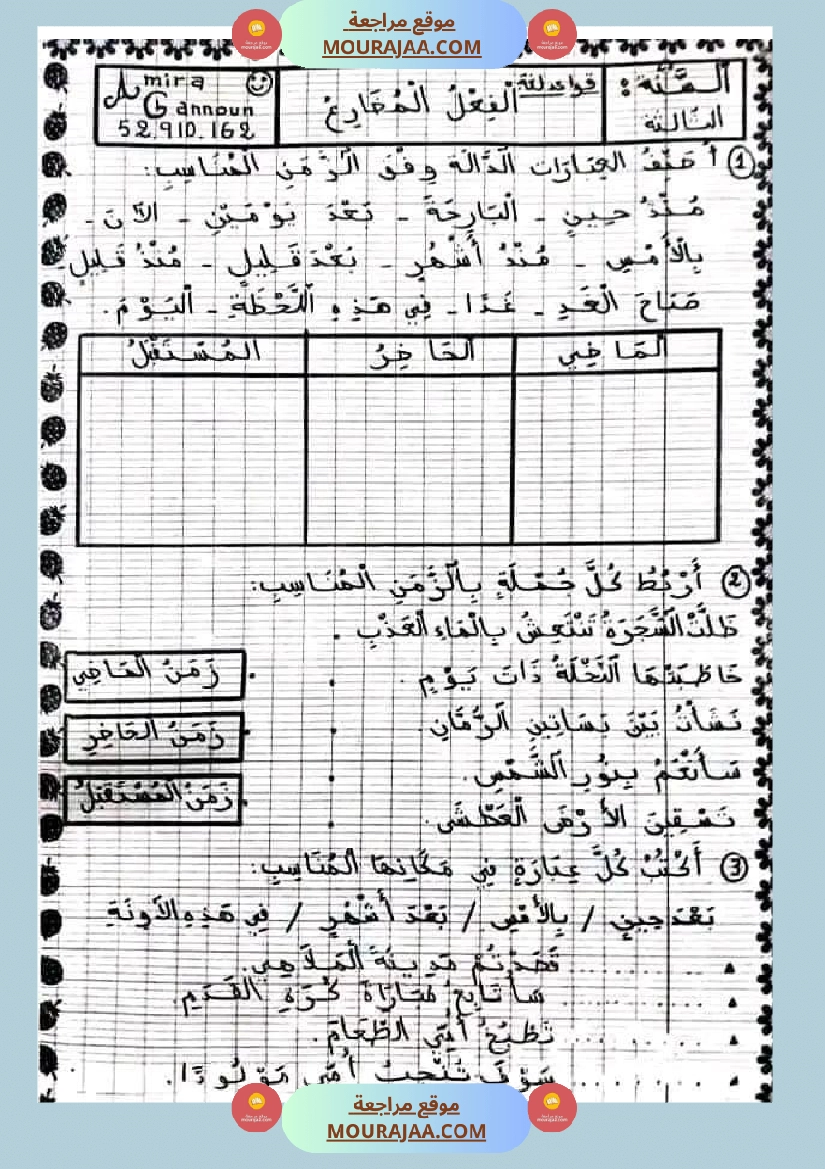 موقع مراجعة
MOURAJAA.COM
السَّنَة الثالثة:
قواعد لغة
الْفِعْلُ الْمُضَارِعُ
Amira Gannoun
52.910.162
① أُصَنِّفُ العِبَارَات الدَّالَّة وِفْقَ الزَّمَنِ الْمُنَاسِبِ:
مُنْذُ حِينٍ - الْبَارِحَةَ - بَعْدَ يَوْمَيْنِ - الآنَ -
بِالْأَمْسِ - مُنْذُ أَشْهُرٍ - بَعْدَ قَلِيلٍ - مُنْذُ قَلِيلٍ
صَبَاحَ الْغَدِ - غَدًا - فِي هَذِهِ اللَّحْظَةِ - الْيَوْمَ.
الْمَاضِي
الْحَاضِرُ
الْمُسْتَقْبَلُ
② أَرْبِطُ كُلَّ جُمْلَةٍ بِالزَّمَنِ الْمُنَاسِبِ:
ظَلَّتْ الشَّجَرَةُ تَنْتَعِشُ بِالْمَاءِ الْعَذْبِ.
خَاطَبَتْهَا النَّخْلَةُ ذَاتَ يَوْمٍ.
زَمَنُ الْمَاضِي
نَشَأْتُ بَيْنَ بَسَاتِينِ الرُّمَّانِ.
زَمَنُ الحَاضِرِ
سَأَنْعَمُ بِنُورِ الشَّمْسِ.
زَمَنُ الْمُسْتَقْبَلُ
تَسْقِينَ الأَرْضَ الْعَطْشَى.
③ أَكْتُبُ كُلَّ عِبَارَةٍ فِي مَكَانِهَا الْمُنَاسِبِ:
بَعْدَ حِينٍ / بِالأَمْسِ / بَعْدَ أَشْهُرٍ / فِي هَذِهِ الآوِنَةِ
............ قَصَدْتُمْ مَدِينَةَ الْمَلَاهِي.
............ سَأُتَابِعُ مُبَارَاةَ كُرَةِ القَدَمِ.
............ تَطْبُخُ أُمِّي الطَّعَامَ.
............ سَوْفَ تُنْجِبُ أُمِّي مَوْلُودًا.
موقع مراجعة
MOURAJAA.COM